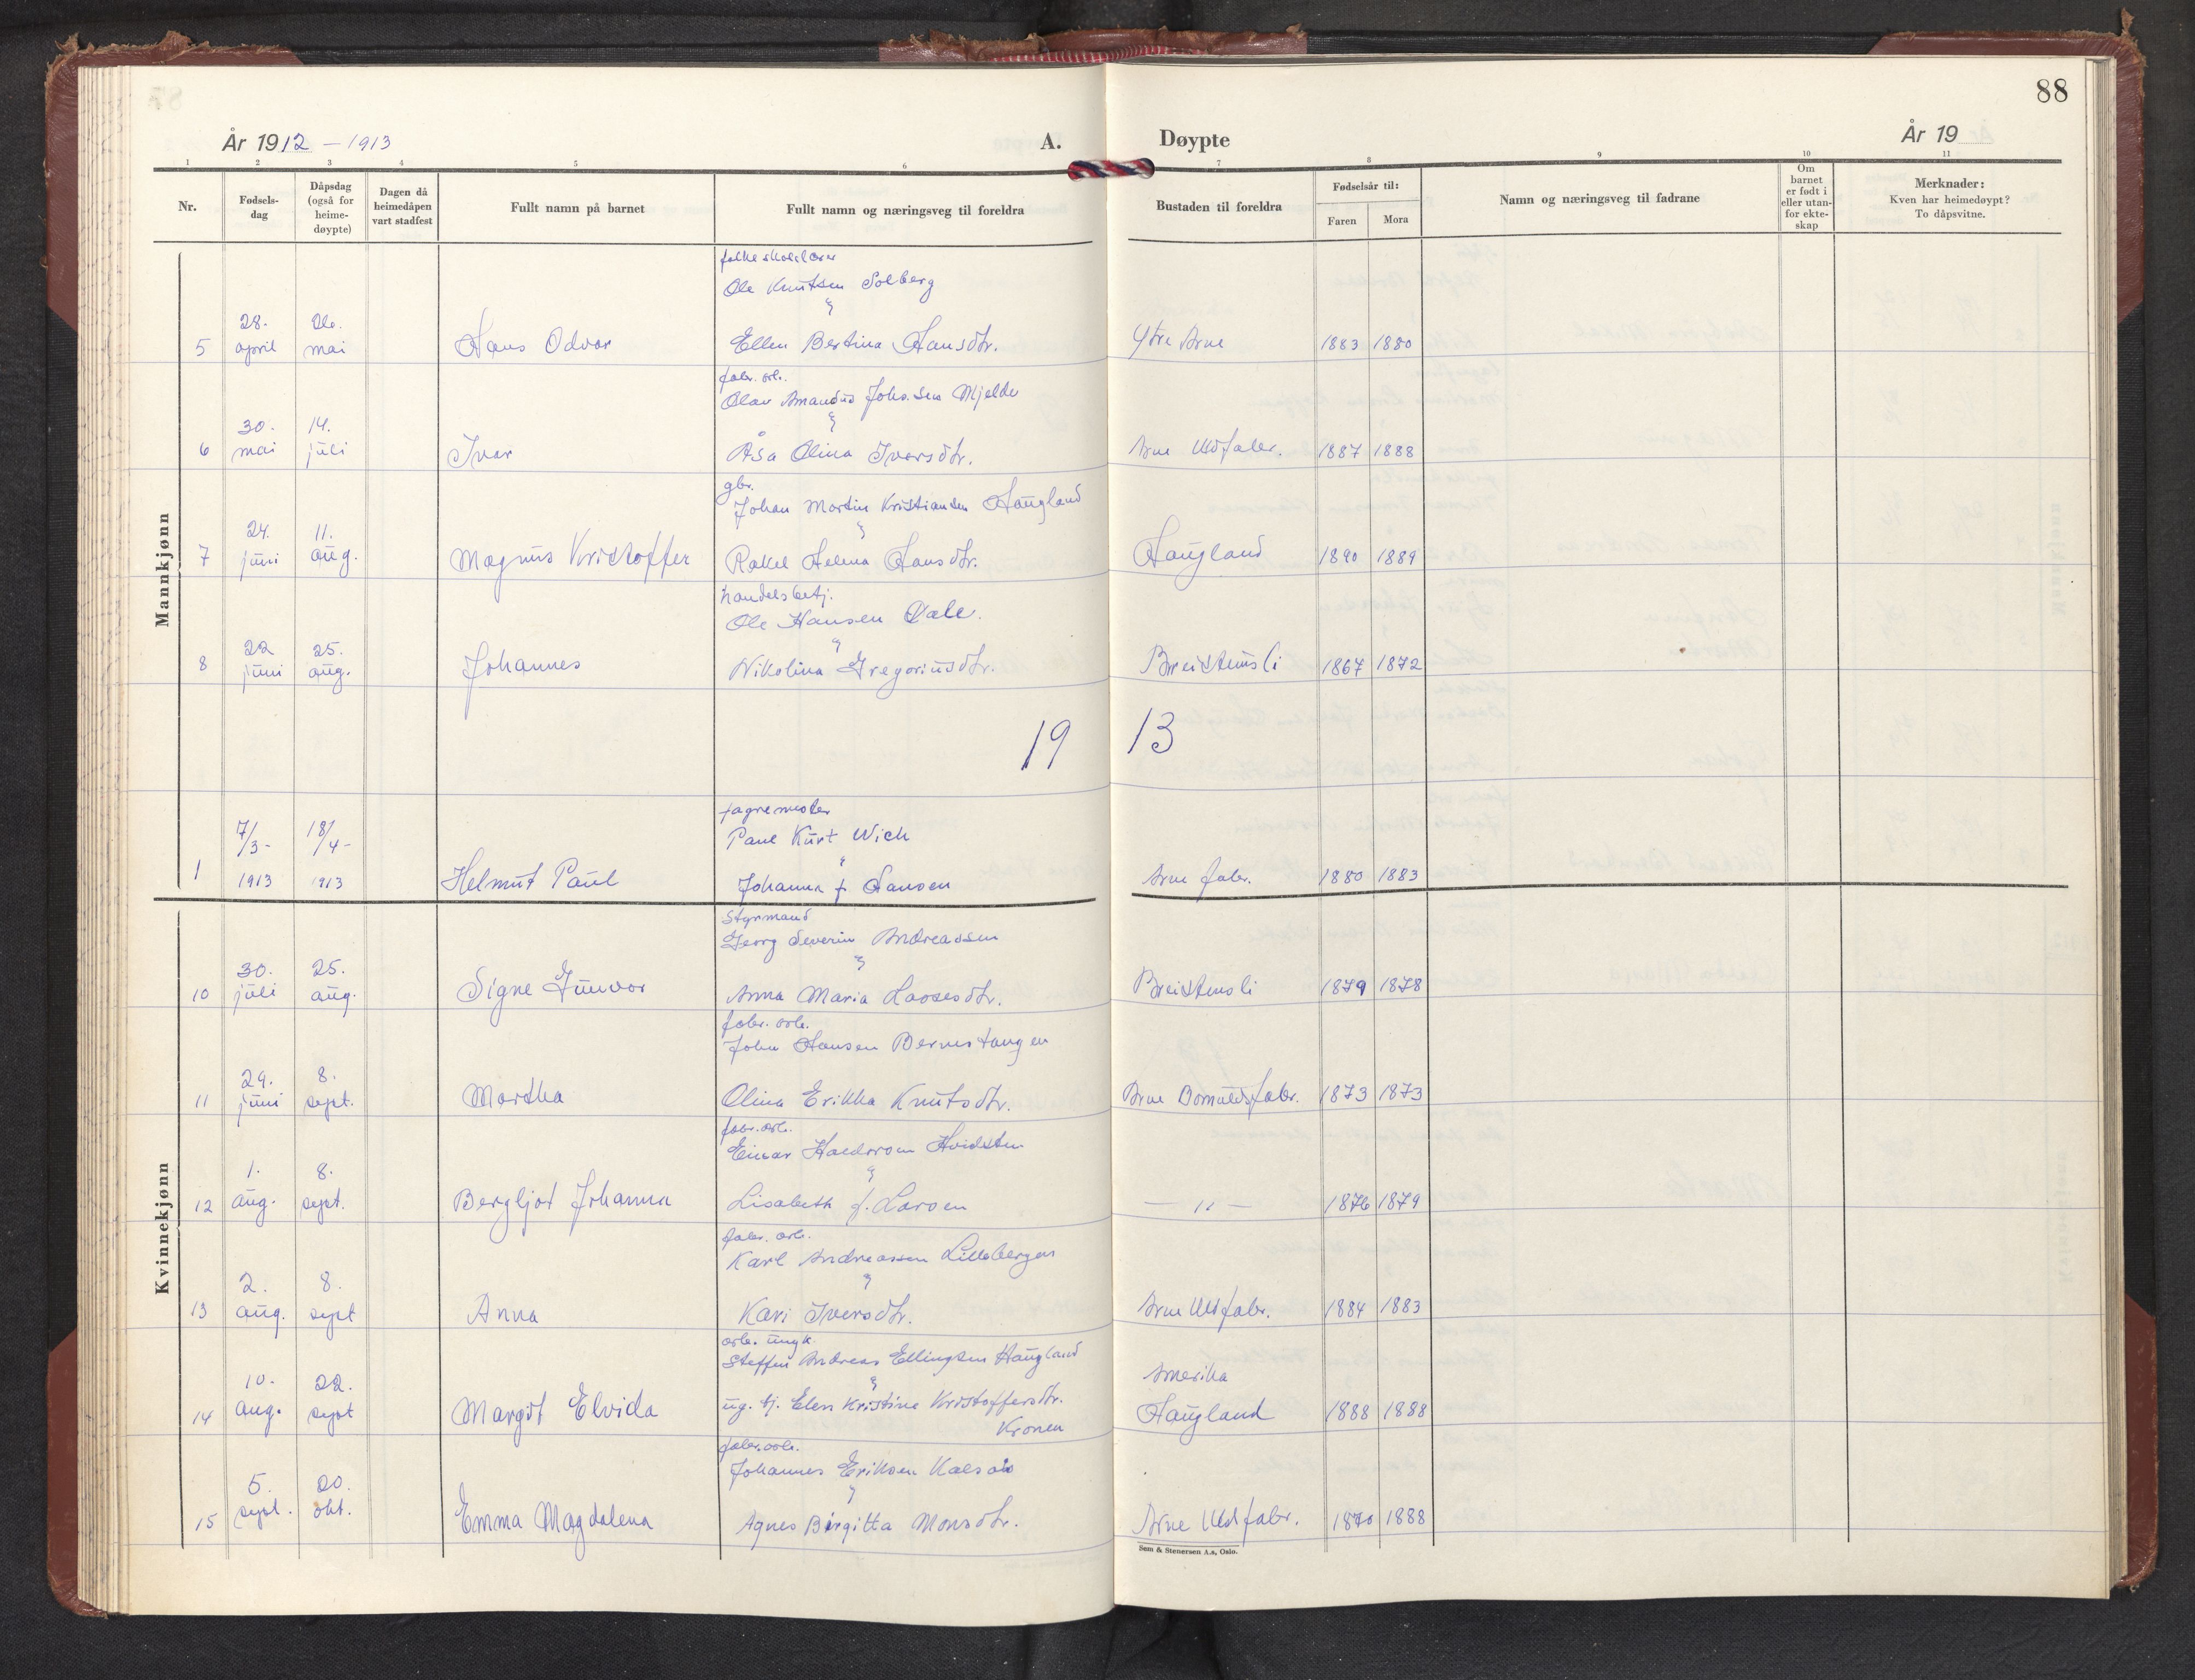 88
År 1912 - 1913
A.
Døypte
År 19
1 2 3 4 5 6 7 8 9 10 11
Nr.
Fødsels-
dag
Dåpsdag
(også for
heime-
døypte)
Dagen då
heimedåpen
vart stadfest
Fullt namn på barnet
Fullt namn og næringsveg til foreldra
Bustaden til foreldra
Fødselsår til:
Faren Mora
Namn og næringsveg til fadrane
Om
barnet
er født i
eller utan-
for ekte-
skap
Merknader:
Kven har heimedøypt?
To dåpsvitne.
Mankjønn
folkeskolelærer
Ole Knutsen Solberg
28. 26.
5 april mai Hans Odvar Ellen Bertina Hansdtr. Ytre Arne 1883 1880
fabr. arb.
Olav Amandus Johs.sen Mjelde
30. 14.
6 mai juli Ivar Åsa Olina Iversdtr. Arne Uldfabr. 1887 1888
gbr.
Johan Martin Kristiansen Haugland
24. 11.
7 juni aug. Magnus Kristoffer Rakel Helena Hansdtr. Haugland 1890 1889
handelsbetj.
Ole Hansen Dale.
22 25.
8 juni aug. Johannes Nikolina Gregoriusdtr. Breistensli 1867 1872
19 13
Paul Kurt Wich
7/3- 18/4-
1 1913 1913 Helmut Paul Johanna f. Hansen Arne fabr. 1880 1883
Kvinnekjønn
Styrmand
Georg Severin Andreassen
30. 25.
10 juli aug. Signe Gunvor Anna Maria Lassesdtr. Breistensli 1879 1878
fabr. arb.
John Hansen Bernestangen
29. 8.
11 juni sept. Martha Olina Erikka Knutsdtr. Arne Bomuldsfabr. 1873 1873
fabr. arb.
Einar Haldorsen Hvidsten
1. 8.
12 aug. sept. Bergljot Johanna Lisabeth f. Larsen — " — 1876 1879
fabr. arb.
Karl Andreassen Lillebergen
2. 8.
13 aug. sept Anna Kari Iversdtr. Arne Uldfabr. 1884 1883
arb. ungk.
Steffen Andreas Ellingsen Haugland
Amerika
10. 22.
14 aug. sept Margit Elvida ug. tj. Elen Kristine Kristoffersdtr. Haugland 1888 1888
Kronen
fabr. arb.
Johannes Eriksen Kalsås
5. 20.
15 sept. okt. Emma Magdalena Agnes Birgitta Monsdtr. Arne Uldfabr. 1870 1888
Sem & Stenersen A.s, Oslo.